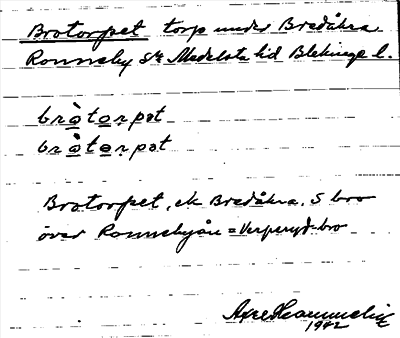 Brotorpet torp under Bredåkra
Ronneby sn Medelsta hd Blekinge l.
bròtorpət
bròtorpət
Brotorpet, ek Bredåkra. S bro
över Ronnebyån =
1942